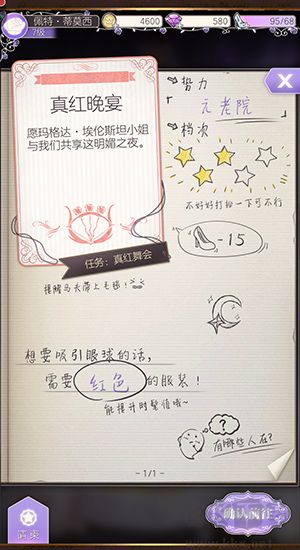 佩特·蒂莫西
7级
4600
580
95/68
真红晚宴
愿玛格达·埃伦斯坦小姐
与我们共享这明媚之夜。
任务：真红舞会
势力
元老院
档次
不好好打扮一下可不行
-15
提醒马夫带上毛毯！
想要吸引眼球的话，
需要 红色 的服装！
能提升时髦值哦~
有哪些人在？
- 1/1 -
请柬
确认前往